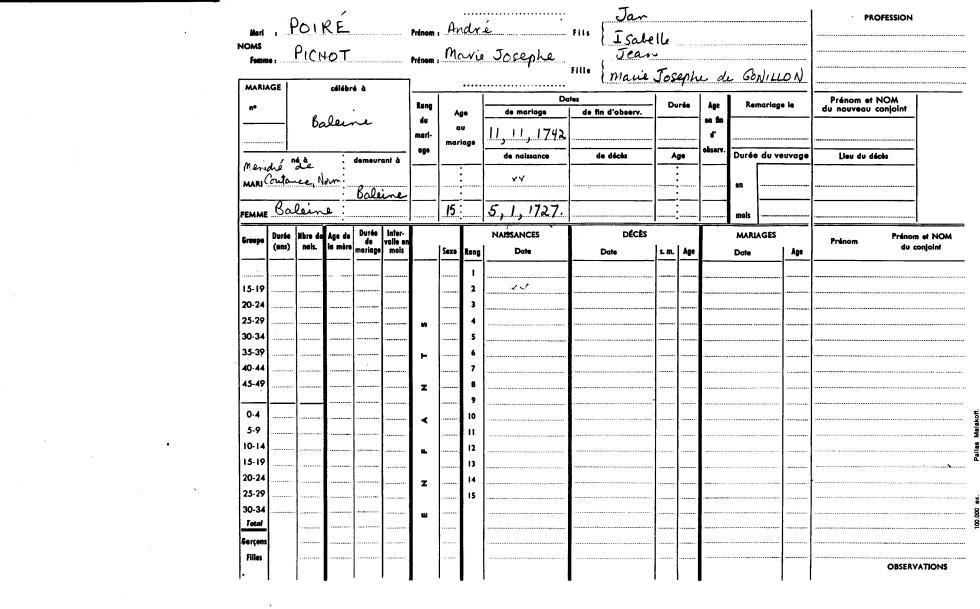 Mari : POIRÉ Prénom : André Fils { Jan
Isabelle
NOMS
Femme : PICHOT Prénom : Marie Josephe Fille { Jean
Marie Josephe de GONILLON
PROFESSION
MARIAGE
n°
célébré à
Baleine
Rang du mari-age
Age au mariage
Dates
de mariage
de fin d'observ.
11, 11, 1742
de naissance
de décès
Durée
Age
Age en fin d' observ.
Remariage le
Durée du veuvage
en
mois
Prénom et NOM du nouveau conjoint
Lieu du décès
né à
demeurant à
de
MARI Coutance, Norm. Baleine
FEMME Baleine : 15 : 5, 1, 1727.
Groupe
Durée (ans)
Nbre de nais.
Age de la mère
Durée de mariage
Inter-valle en mois
Sexe
Rang
NAISSANCES
Date
DÉCÈS
Date
s. m.
Age
MARIAGES
Date
Age
Prénom
Prénom et NOM du conjoint
ENFANTS
1
15-19 2
20-24 3
25-29 4
30-34 5
35-39 6
40-44 7
45-49 8
9
0-4 10
5-9 11
10-14 12
15-19 13
20-24 14
25-29 15
30-34
Total
Garçons
Filles
OBSERVATIONS
100.000 ex. Pallas Malakoff.